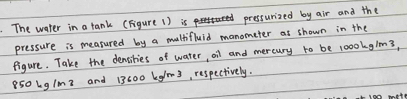 . The water in a tank (Figure 1) is pressurized by air and the
pressure is measured by a multifluid manometer as shown in the
figure. Take the densities of water, oil and mercury to be 1000kg/m3,
850 kg/m3 and 13600 kg/m3, respectively.